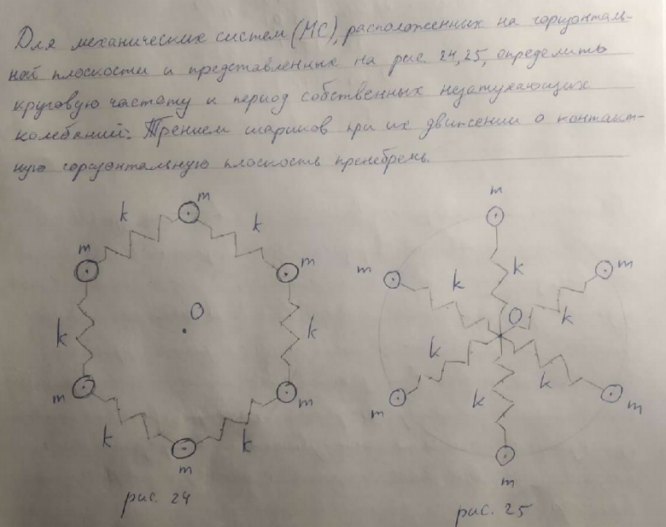 Для механических систем (МС), расположенных на горизонталь-
ной плоскости и представленных на рис. 24, 25, определить
круговую частоту и период собственных незатухающих
колебаний. Трением шариков при их движении о контакт-
ную горизонтальную плоскость пренебречь.
m
k k
m m
O
k k
m m
k k
m
рис. 24
m
k
m m
k k
O
k k
k
m m
m
рис. 25